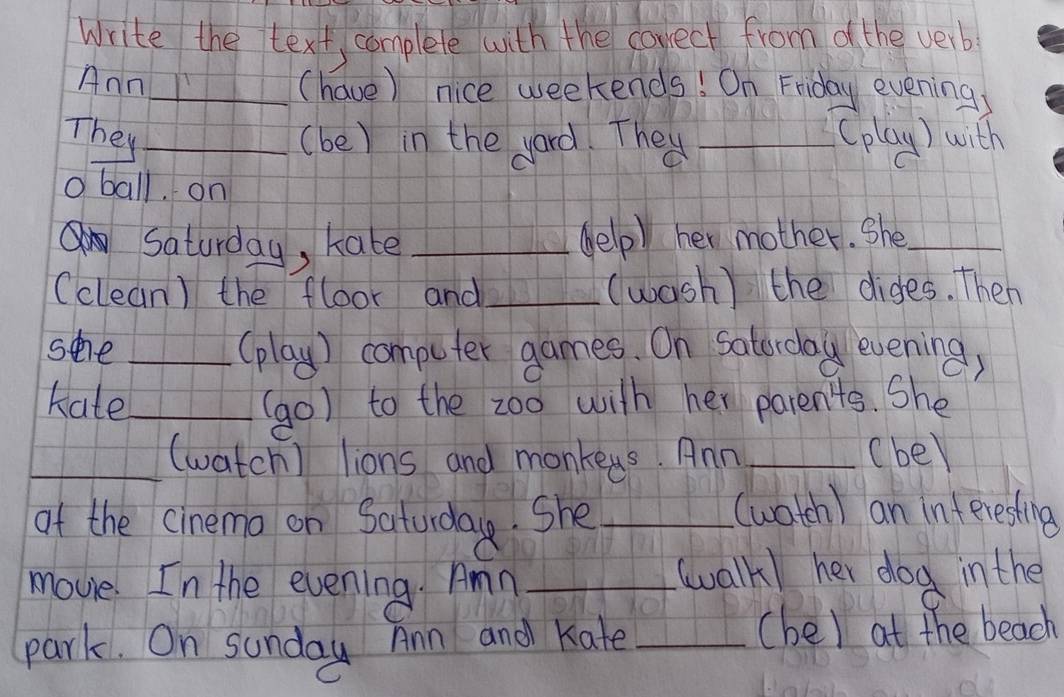 Write the text, complete with the correct from of the verb:
Ann ______ (have) nice weekends! On Friday evening,
They ______ (be) in the yard. They ______ (play) with
a ball. on
Saturday, kate ______ (help) her mother. She ______
(clean) the floor and ______ (wash) the diges. Then
she ______ (play) computer games. On Saturday evening,
Kate ______ (go) to the zoo with her parents. She
______ (watch) lions and monkeys. Ann ______ (be)
at the cinema on Saturday. She ______ (watch) an interesting
movie. In the evening. Ann ______ (walk) her dog in the
park. On sunday Ann and Kate ______ (be) at the beach